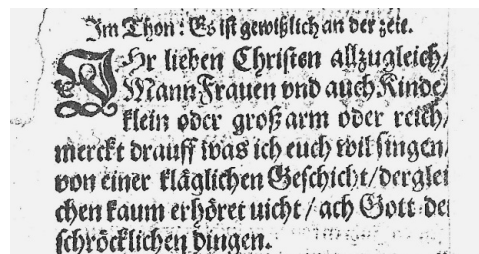 Im Thon: Es ist gewißlich an der zeit.
IHr lieben Christen allzugleich/
Mann Frauen vnd auch Kinde/
klein oder groß arm oder reich/
merckt drauff was ich euch wil singen/
von einer kläglichen Geschicht/derglei
chen kaum erhöret nicht / ach Gott der
schröcklichen dingen.